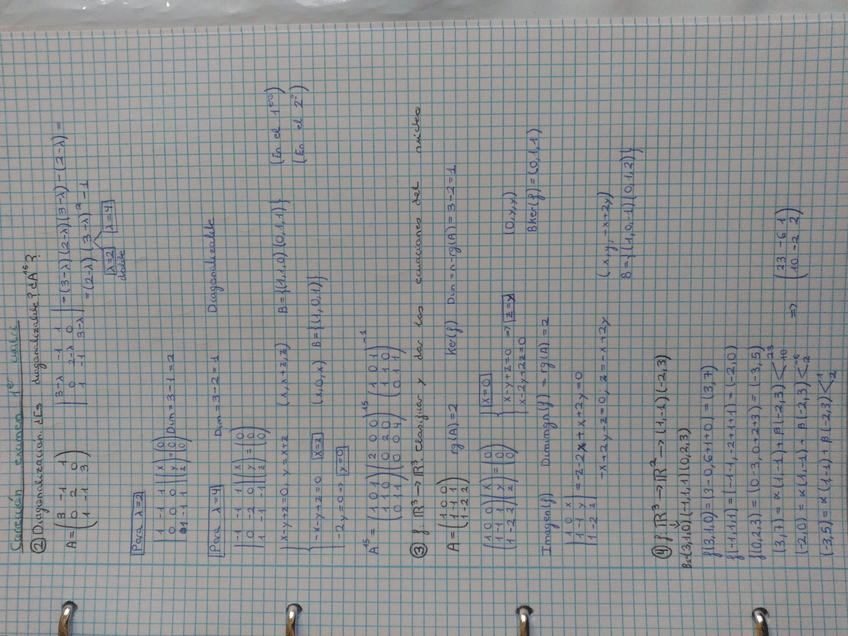 examen 1er
② Diagonalización ¿Es diagonalizable? ¿A^15?
A = (3 -1 1 / 0 2 0 / 1 -1 3)
|3-λ -1 1 / 0 2-λ 0 / 1 -1 3-λ| = (3-λ)(2-λ)(3-λ) - (2-λ) =
= (2-λ)(3-λ)² - 1
λ=2 doble λ=4
Para λ=2
|1 -1 1 / 0 0 0 / 1 -1 1| |x / y / z| = |0 / 0 / 0| Dim = 3-1 = 2
Para λ=4 Dim = 3-2 = 1 Diagonalizable
|-1 -1 1 / 0 -2 0 / 1 -1 -1| |x / y / z| = |0 / 0 / 0|
x-y+z=0, y=x+z (x, x+z, z) B={(1,1,0)(0,1,1)} (En el 1er)
-x-y+z=0 x=z (x,0,x) B={(1,0,1)} (En el 2º)
-2y=0 → y=0
A^15 = (1 0 1 / 1 1 0 / 0 1 1) (2 0 0 / 0 2 0 / 0 0 4)^15 (1 0 1 / 1 1 0 / 0 1 1)^-1
③ f: ℝ³→ℝ³ Clasificar y dar las ecuaciones del núcleo
A = (1 0 0 / 1 -1 1 / 1 -2 2) rg(A)=2 Ker(f) Dim = n-rg(A) = 3-2 = 1
(1 0 0 / 1 -1 1 / 1 -2 2) (x / y / z) = (0 / 0 / 0) x=0
x-y+z=0 ⇒ z=y (0,y,y)
x-2y+2z=0 BKer(f)=(0,1,1)
Imagen(f) Dim Img(f) = rg(A) = 2
|1 0 x / 1 -1 y / 1 -2 z| = -z-2x+x+2y=0
-x+2y-z=0, z=-x+2y (x, y, -x+2y)
B={(1,0,-1)(0,1,2)}
④ f: ℝ³→ℝ² → (1,-1)(-2,3)
B=(3,1,0)(-1,1,1)(0,2,3)
f(3,1,0)=(3-0, 6+1+0)=(3,7)
f(-1,1,1)=(-1-1, -2+1+1)=(-2,0)
f(0,2,3)=(0-3, 0+2+3)=(-3,5)
(3,7)=α(1,-1)+β(-2,3) < 23 10
(-2,0)=α(1,-1)+β(-2,3) < -6 -2 ⇒ (23 -6 1 / 10 -2 2)
(-3,5)=α(1,-1)+β(-2,3) < 1 2